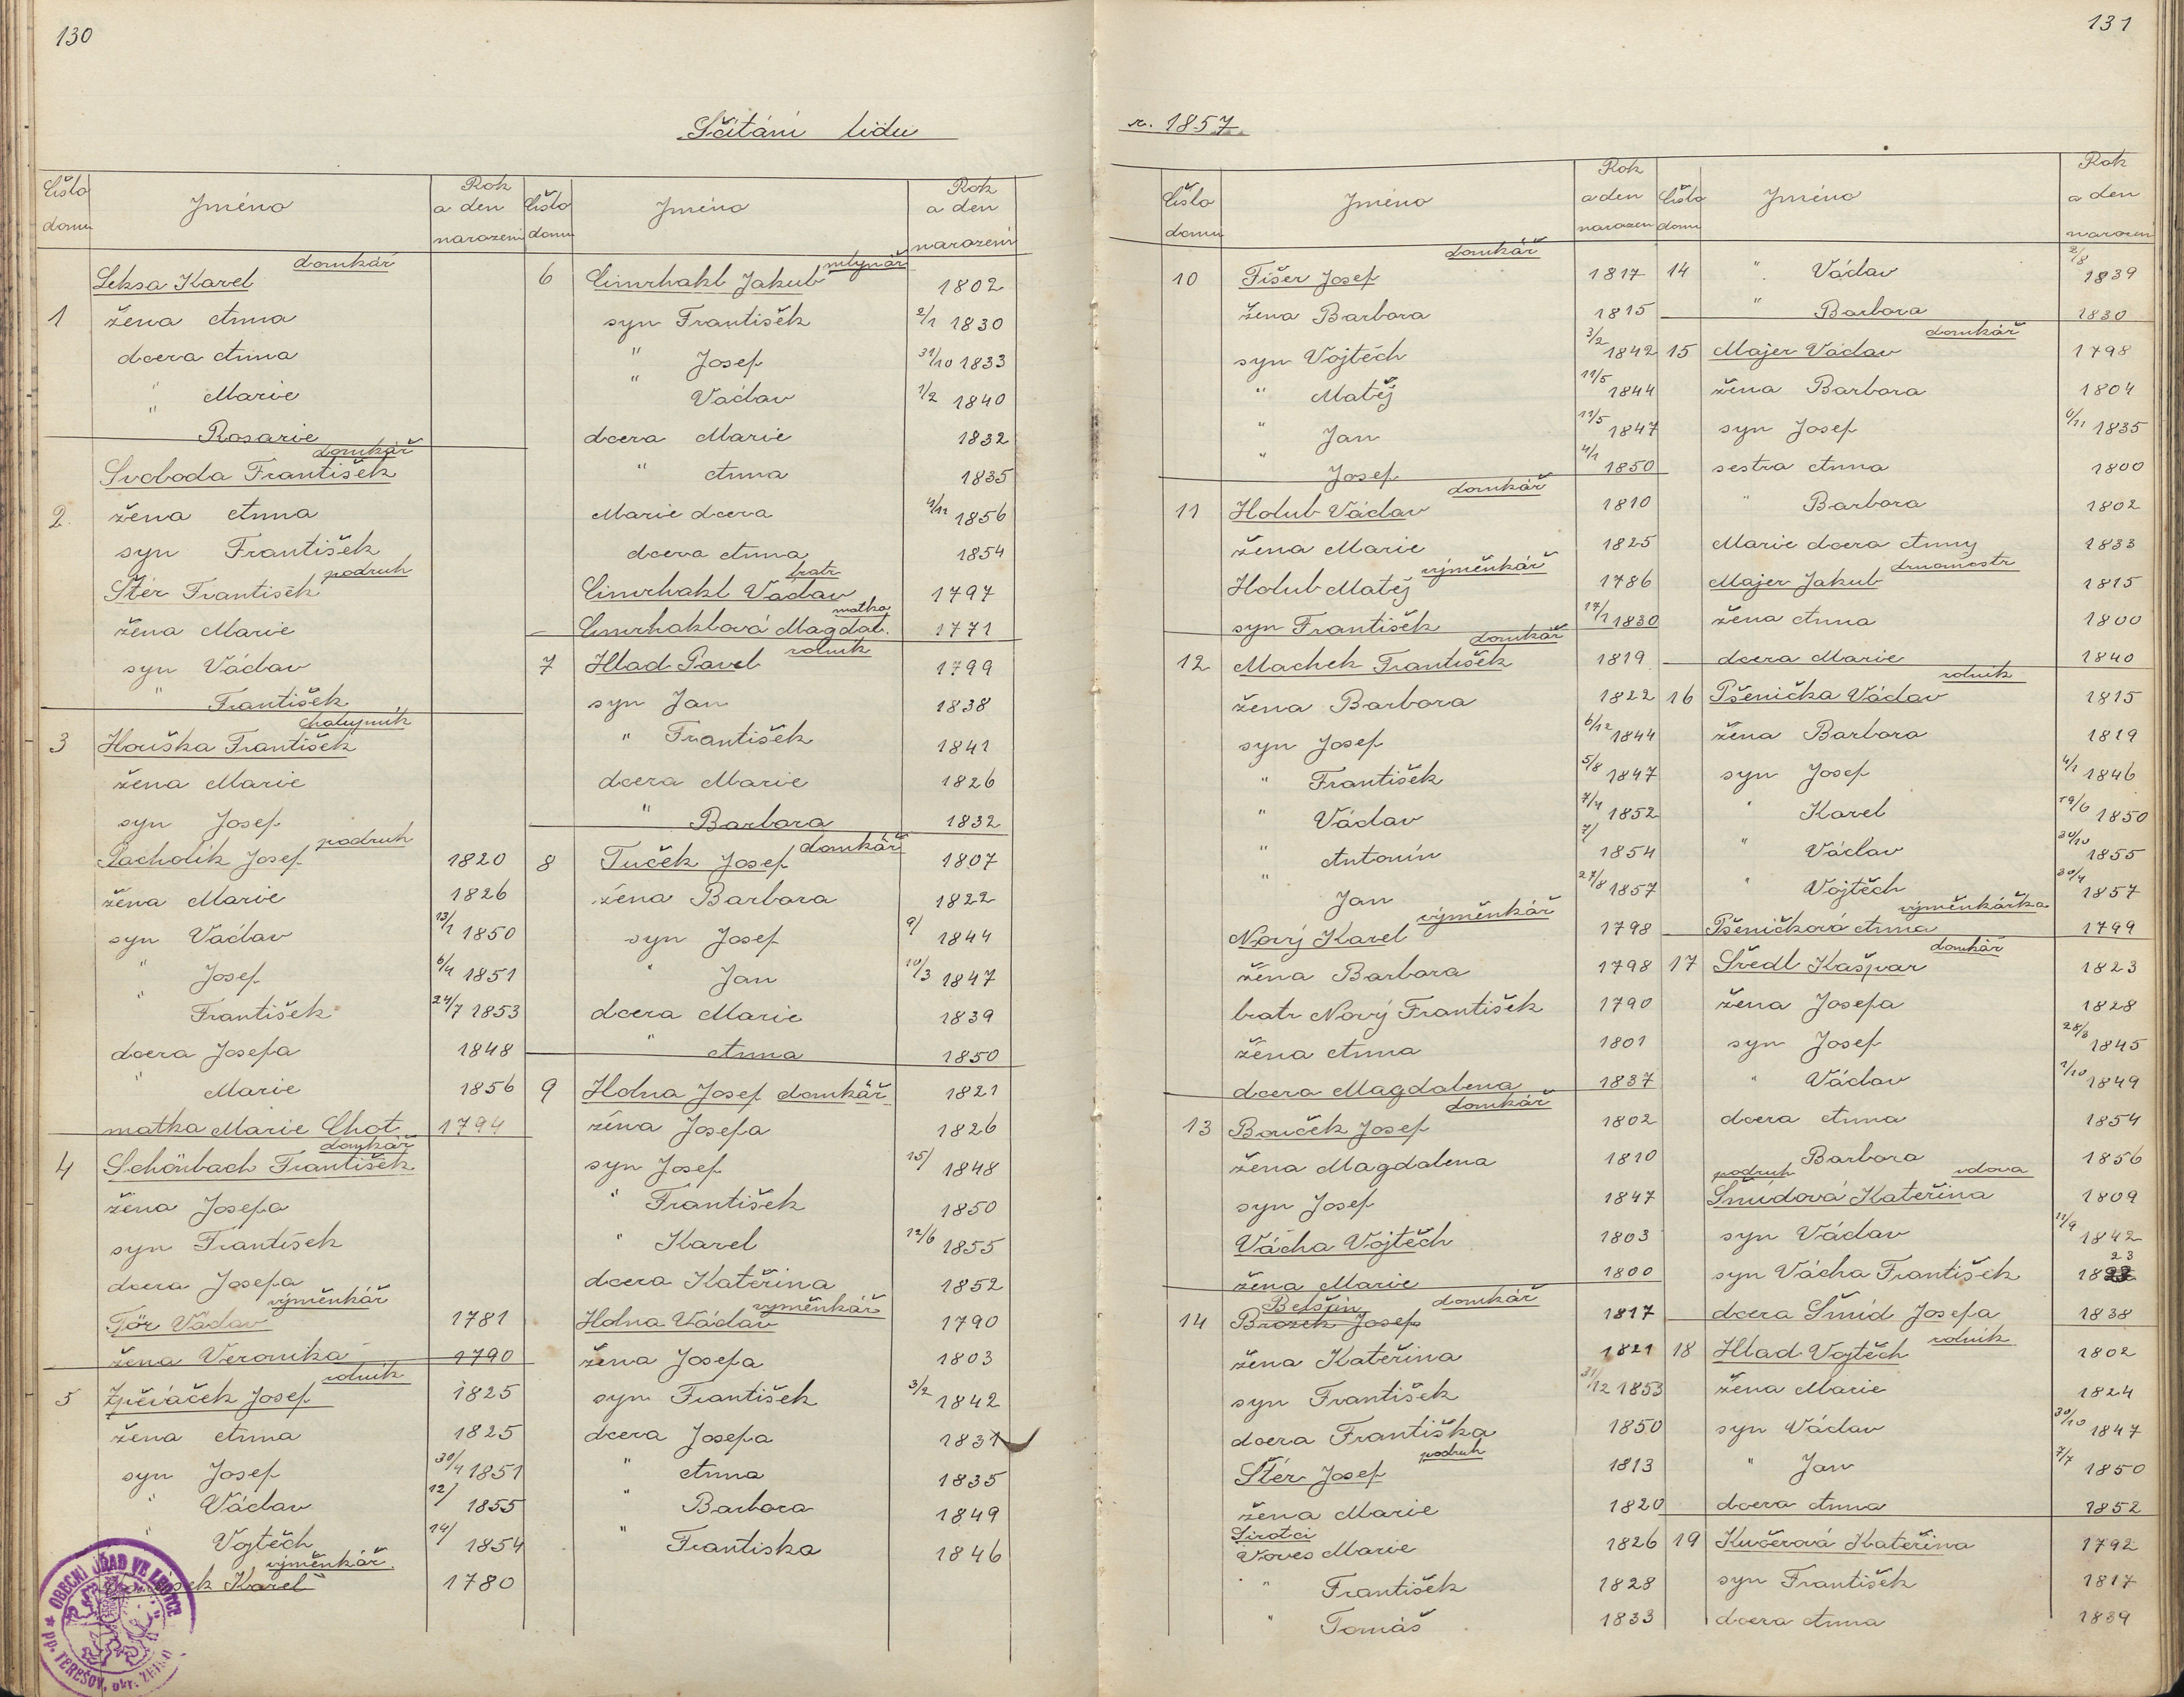 130
Sčítání lidu
Číslo domu Jméno Rok a den narození
domkář
Leksa Karel
1 žena Anna
dcera Anna
" Marie
" Rosarie
domkář
Svoboda František
2. žena Anna
syn František
podruh
Štér František
žena Marie
syn Václav
" František
chalupník
3 Houška František
žena Marie
syn Josef
podruh
Pacholík Josef 1820
žena Marie 1826
syn Václav 13/1 1850
" Josef 6/4 1851
" František 24/7 1853
dcera Josefa 1848
" Marie 1856
matka Marie Chot 1794
domkář
4 Schönbach František
žena Josefa
syn František
dcera Josefa
výměnkář
Tör Václav 1781
žena Veronika 1790
rolník
5 Zpěváček Josef 1825
žena Anna 1825
syn Josef 30/4 1851
" Václav 12/ 1855
" Vojtěch 14/ 1854
výměnkář
Karel 1780
OBECNÍ ÚŘAD VE LHOTCE
pp. TEREŠOV, okr.
Číslo domu Jméno Rok a den narození
mlynář
6 Cimrhakl Jakub 1802
syn František 2/1 1830
" Josef 31/10 1833
" Václav 1/2 1840
dcera Marie 1832
" Anna 1835
Marie dcera 4/12 1856
dcera Anna 1854
bratr
Cimrhakl Václav 1797
matka
Cimrhaklová Magdal. 1771
rolník
7 Hlad Pavel 1799
syn Jan 1838
" František 1841
dcera Marie 1826
" Barbora 1832
domkář
8 Tuček Josef 1807
žena Barbora 1822
syn Josef 9/ 1844
" Jan 10/3 1847
dcera Marie 1839
" Anna 1850
9 Holna Josef domkář 1821
žena Josefa 1826
syn Josef 15/ 1848
" František 1850
" Karel 12/6 1855
dcera Kateřina 1852
výměnkář
Holna Václav 1790
žena Josefa 1803
syn František 3/2 1842
dcera Josefa 1831
" Anna 1835
" Barbora 1849
" Frantiska 1846
131
r. 1857.
Číslo domu Jméno Rok a den narození
domkář
10 Fišer Josef 1817
žena Barbora 1815
syn Vojtěch 3/2 1842
" Matěj 11/5 1844
" Jan 11/5 1847
" Josef 4/1 1850
domkář
11 Holub Václav 1810
žena Marie 1825
výměnkář
Holub Matěj 1786
syn František 17/1 1830
domkář
12 Machek František 1819
žena Barbora 1822
syn Josef 6/12 1844
" František 5/8 1847
" Václav 7/4 1852
" Antonín 7/ 1854
" Jan 27/8 1857
výměnkář
Nový Karel 1798
žena Barbora 1798
bratr Nový František 1790
žena Anna 1801
dcera Magdalena 1837
domkář
13 Bouček Josef 1802
žena Magdalena 1810
syn Josef 1847
Vácha Vojtěch 1803
žena Marie 1800
Betšín domkář
14 Brozek Josef 1817
žena Kateřina 1821
syn František 31/12 1853
dcera Františka 1850
podruh
Štér Josef 1813
žena Marie 1820
Sirotci
Voves Marie 1826
" František 1828
" Tomáš 1833
Číslo domu Jméno Rok a den narozen
14 " Václav 2/8 1839
" Barbora 1830
domkář
15 Majer Václav 1798
žena Barbora 1804
syn Josef 6/11 1835
sestra Anna 1800
" Barbora 1802
Marie dcera Anny 1833
Majer Jakub 1815
žena Anna 1800
dcera Marie 1840
rolník
16 Pšenička Václav 1815
žena Barbora 1819
syn Josef 4/1 1846
" Karel 19/6 1850
" Václav 30/10 1855
" Vojtěch 30/4 1857
výměnkářka
Pšeničková Anna 1799
domkář
17 Švedl Kašpar 1823
žena Josefa 1828
syn Josef 28/3 1845
" Václav 1/10 1849
dcera Anna 1854
Barbora 1856
podruh vdova
Šmídová Kateřina 1809
syn Václav 11/9 1842
23
syn Vácha František 18
dcera Šmíd Josefa 1838
rolník
18 Hlad Vojtěch 1802
žena Marie 1824
syn Václav 30/10 1847
" Jan 7/7 1850
dcera Anna 1852
19 Kučerová Kateřina 1792
syn František 1817
dcera Anna 1839